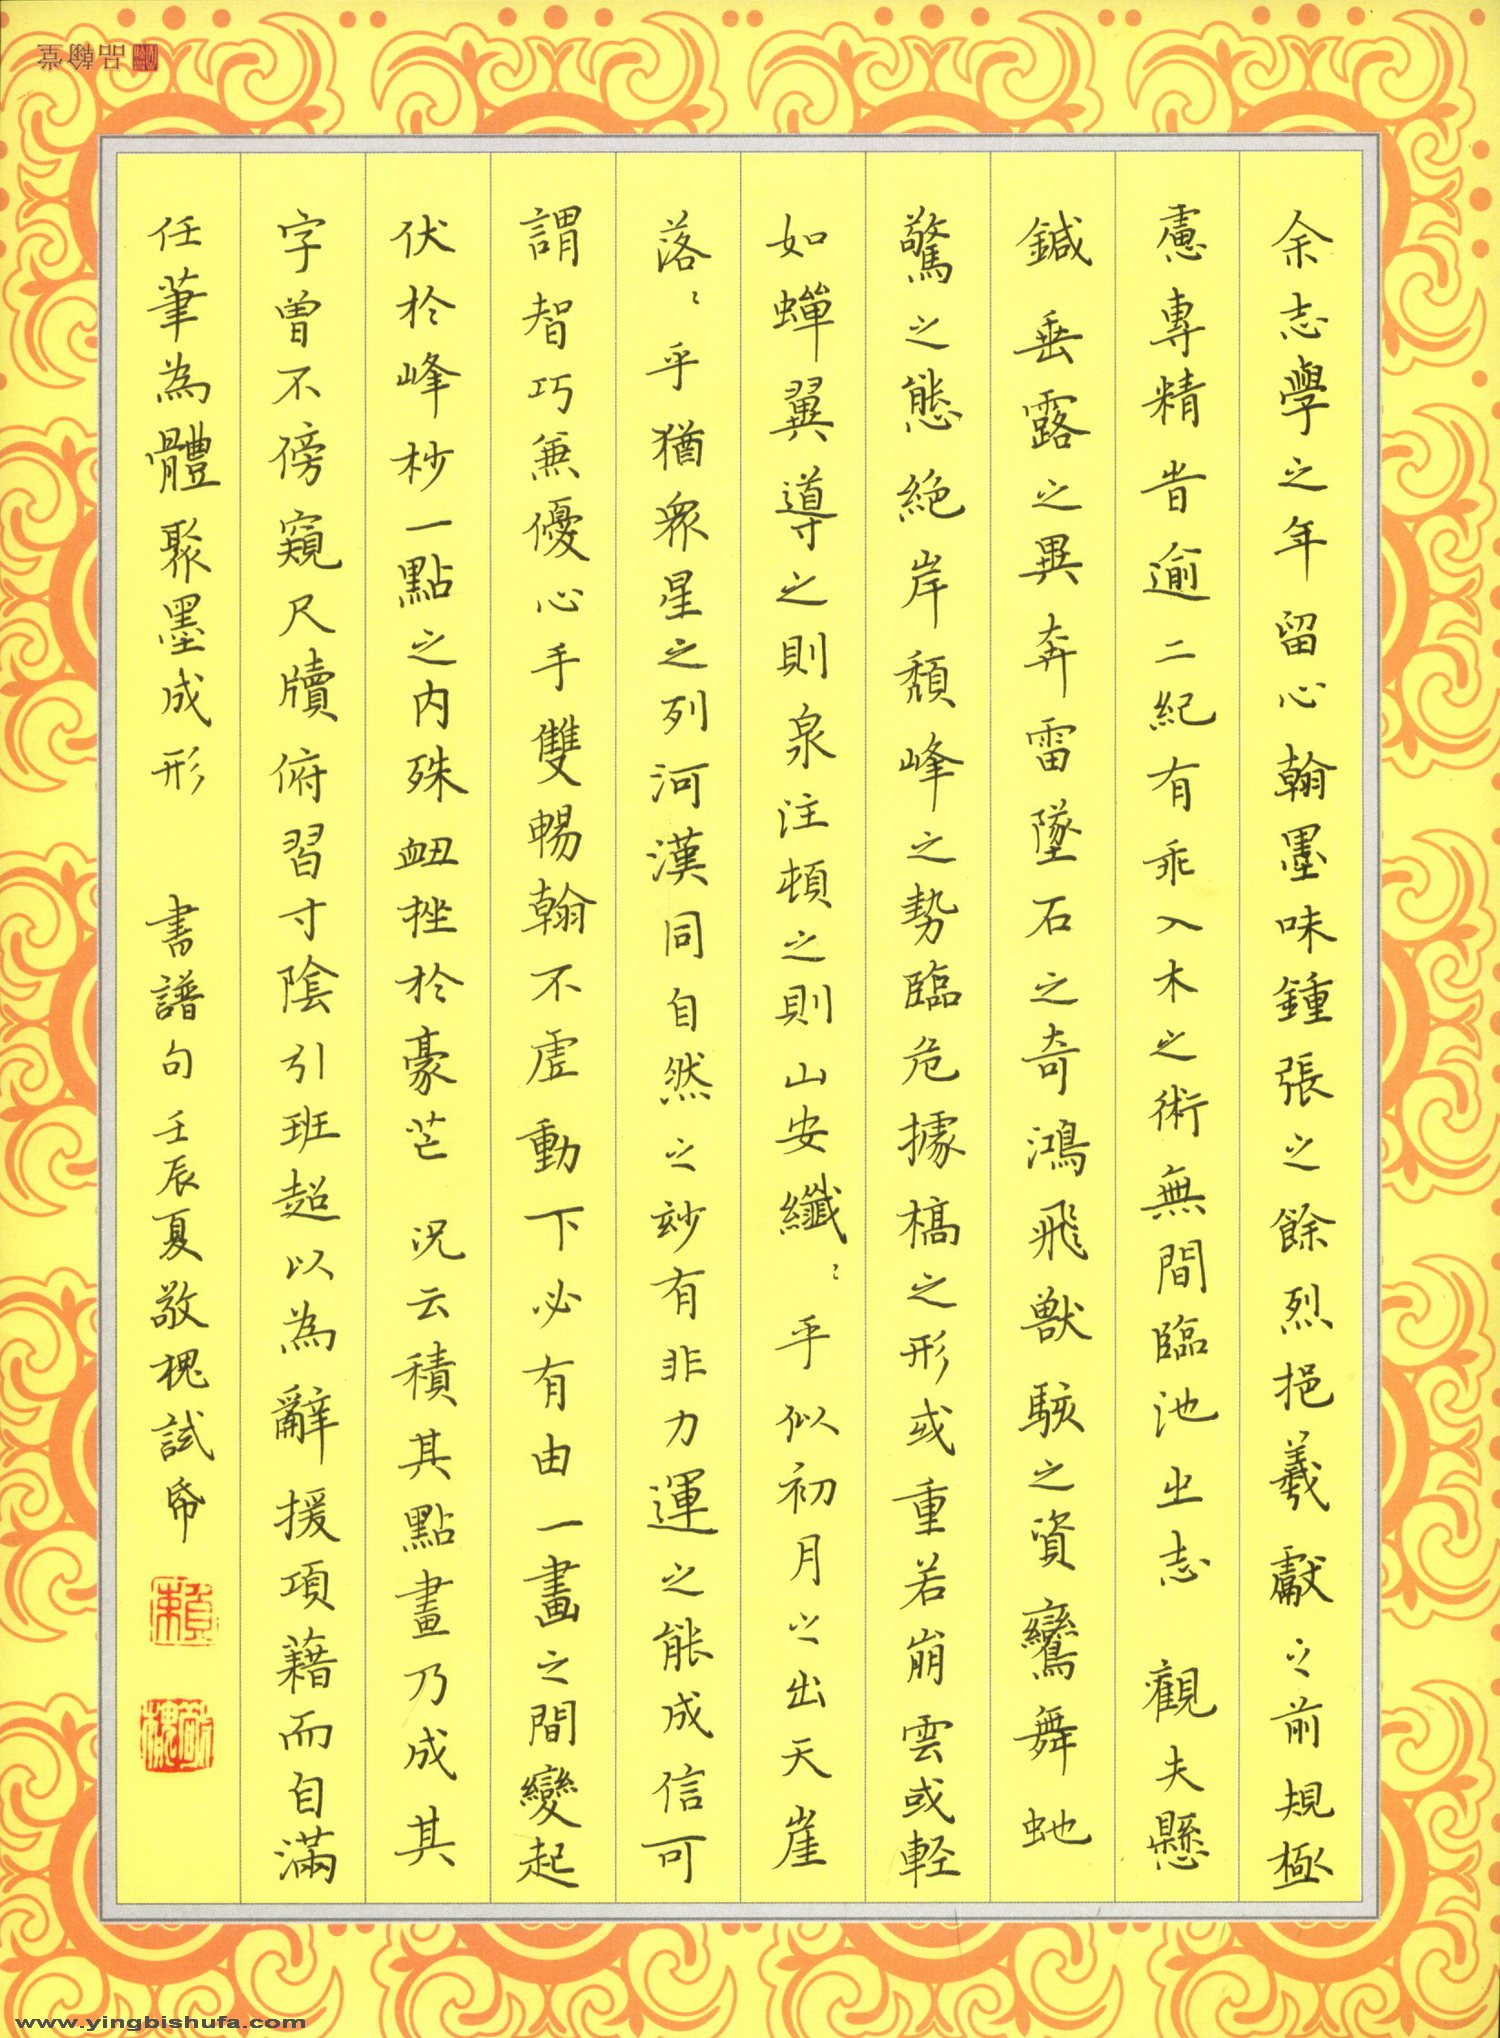 余志學之年留心翰墨味鍾張之餘烈挹羲獻之前規極
慮專精旹逾二紀有乖入木之術無間臨池之志 觀夫懸
鍼垂露之異奔雷墜石之奇鴻飛獸駭之資鸞舞虵
驚之態絕岸頹峰之勢臨危據槁之形或重若崩雲或輕
如蟬翼導之則泉注頓之則山安纖〻乎似初月之出天崖
落〻乎猶眾星之列河漢同自然之玅有非力運之能成信可
謂智巧兼優心手雙暢翰不虛動下必有由一畫之間變起
伏於峰杪一點之內殊衄挫於豪芒 況云積其點畫乃成其
字曾不傍窺尺牘俯習寸陰引班超以為辭援項藉而自滿
任筆為體聚墨成形 書譜句 壬辰夏敬槐試帋
賴
敬槐
品翰堂
www.yingbishufa.com